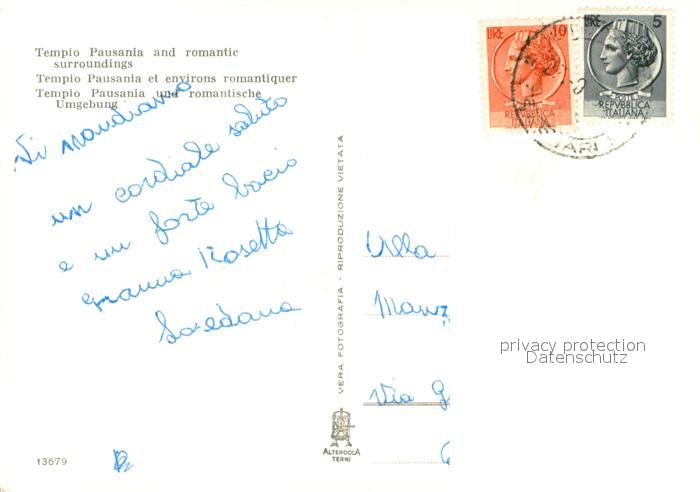 Tempio Pausania and romantic
surroundings
Tempio Pausania et environs romantiquer
Tempio Pausania und romantische
Umgebung
Vi mandiamo
un cordiale saluto
e un forte bacio
Gianna Rosetta
Loredana
13679
VERA FOTOGRAFIA - RIPRODUZIONE VIETATA
ALTEROCCA
TERNI
LIRE 10
POSTE
REPVBBLICA
ITALIANA
LIRE 5
POSTE
REPVBBLICA
ITALIANA
Villa
Manz
Via G
privacy protection
Datenschutz